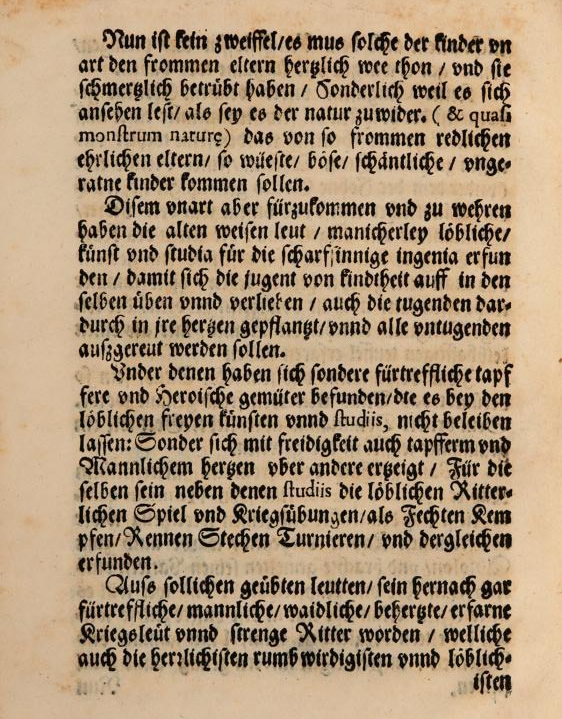 Nun ist kein zweiffel/es mus solche der kinder vn
art den frommen eltern hertzlich wee thon / vnd sie
schmertzlich betrübt haben / Sonderlich weil es sich
ansehen lest/ als sey es der natur zuwider. ( & quasi
monstrum naturę) das von so frommen redlichen
ehrlichen eltern/ so wüeste/ böse/ schäntliche / vnge-
ratne kinder kommen sollen.
Disem vnart aber fürzukommen vnd zu wehren
haben die alten weisen leut / manicherley löbliche/
künst vnd studia für die scharfsinnige ingenia erfun
den / damit sich die jugent von kindtheit auff in den
selben üben vnnd verlieben / auch die tugenden dar-
durch in jre hertzen gepflantzt/vnnd alle vntugenden
auszgereut werden sollen.
Vnder denen haben sich sondere fürtreffliche tapf
fere vnd Heroische gemüter befunden/dte es bey den
löblichen freyen künsten vnnd studiis, nicht beleiben
lassen: Sonder sich mit freidigkeit auch tapfferm vnd
Mannlichem hertzen vber andere ertzeigt / Für die
selben sein neben denen studiis die löblichen Ritter-
lichen Spiel vnd Kriegsübungen/als Fechten Kem
pfen/Rennen Stechen Turnieren/ vnd dergleichen
erfunden.
Auss sollichen geübten leutten/ sein hernach gar
fürtreffliche/ mannliche/waidliche/ behertzte/ erfarne
Kriegsleüt vnnd strenge Ritter worden / welliche
auch die herrlichisten rumb wirdigisten vnnd löblich-
isten